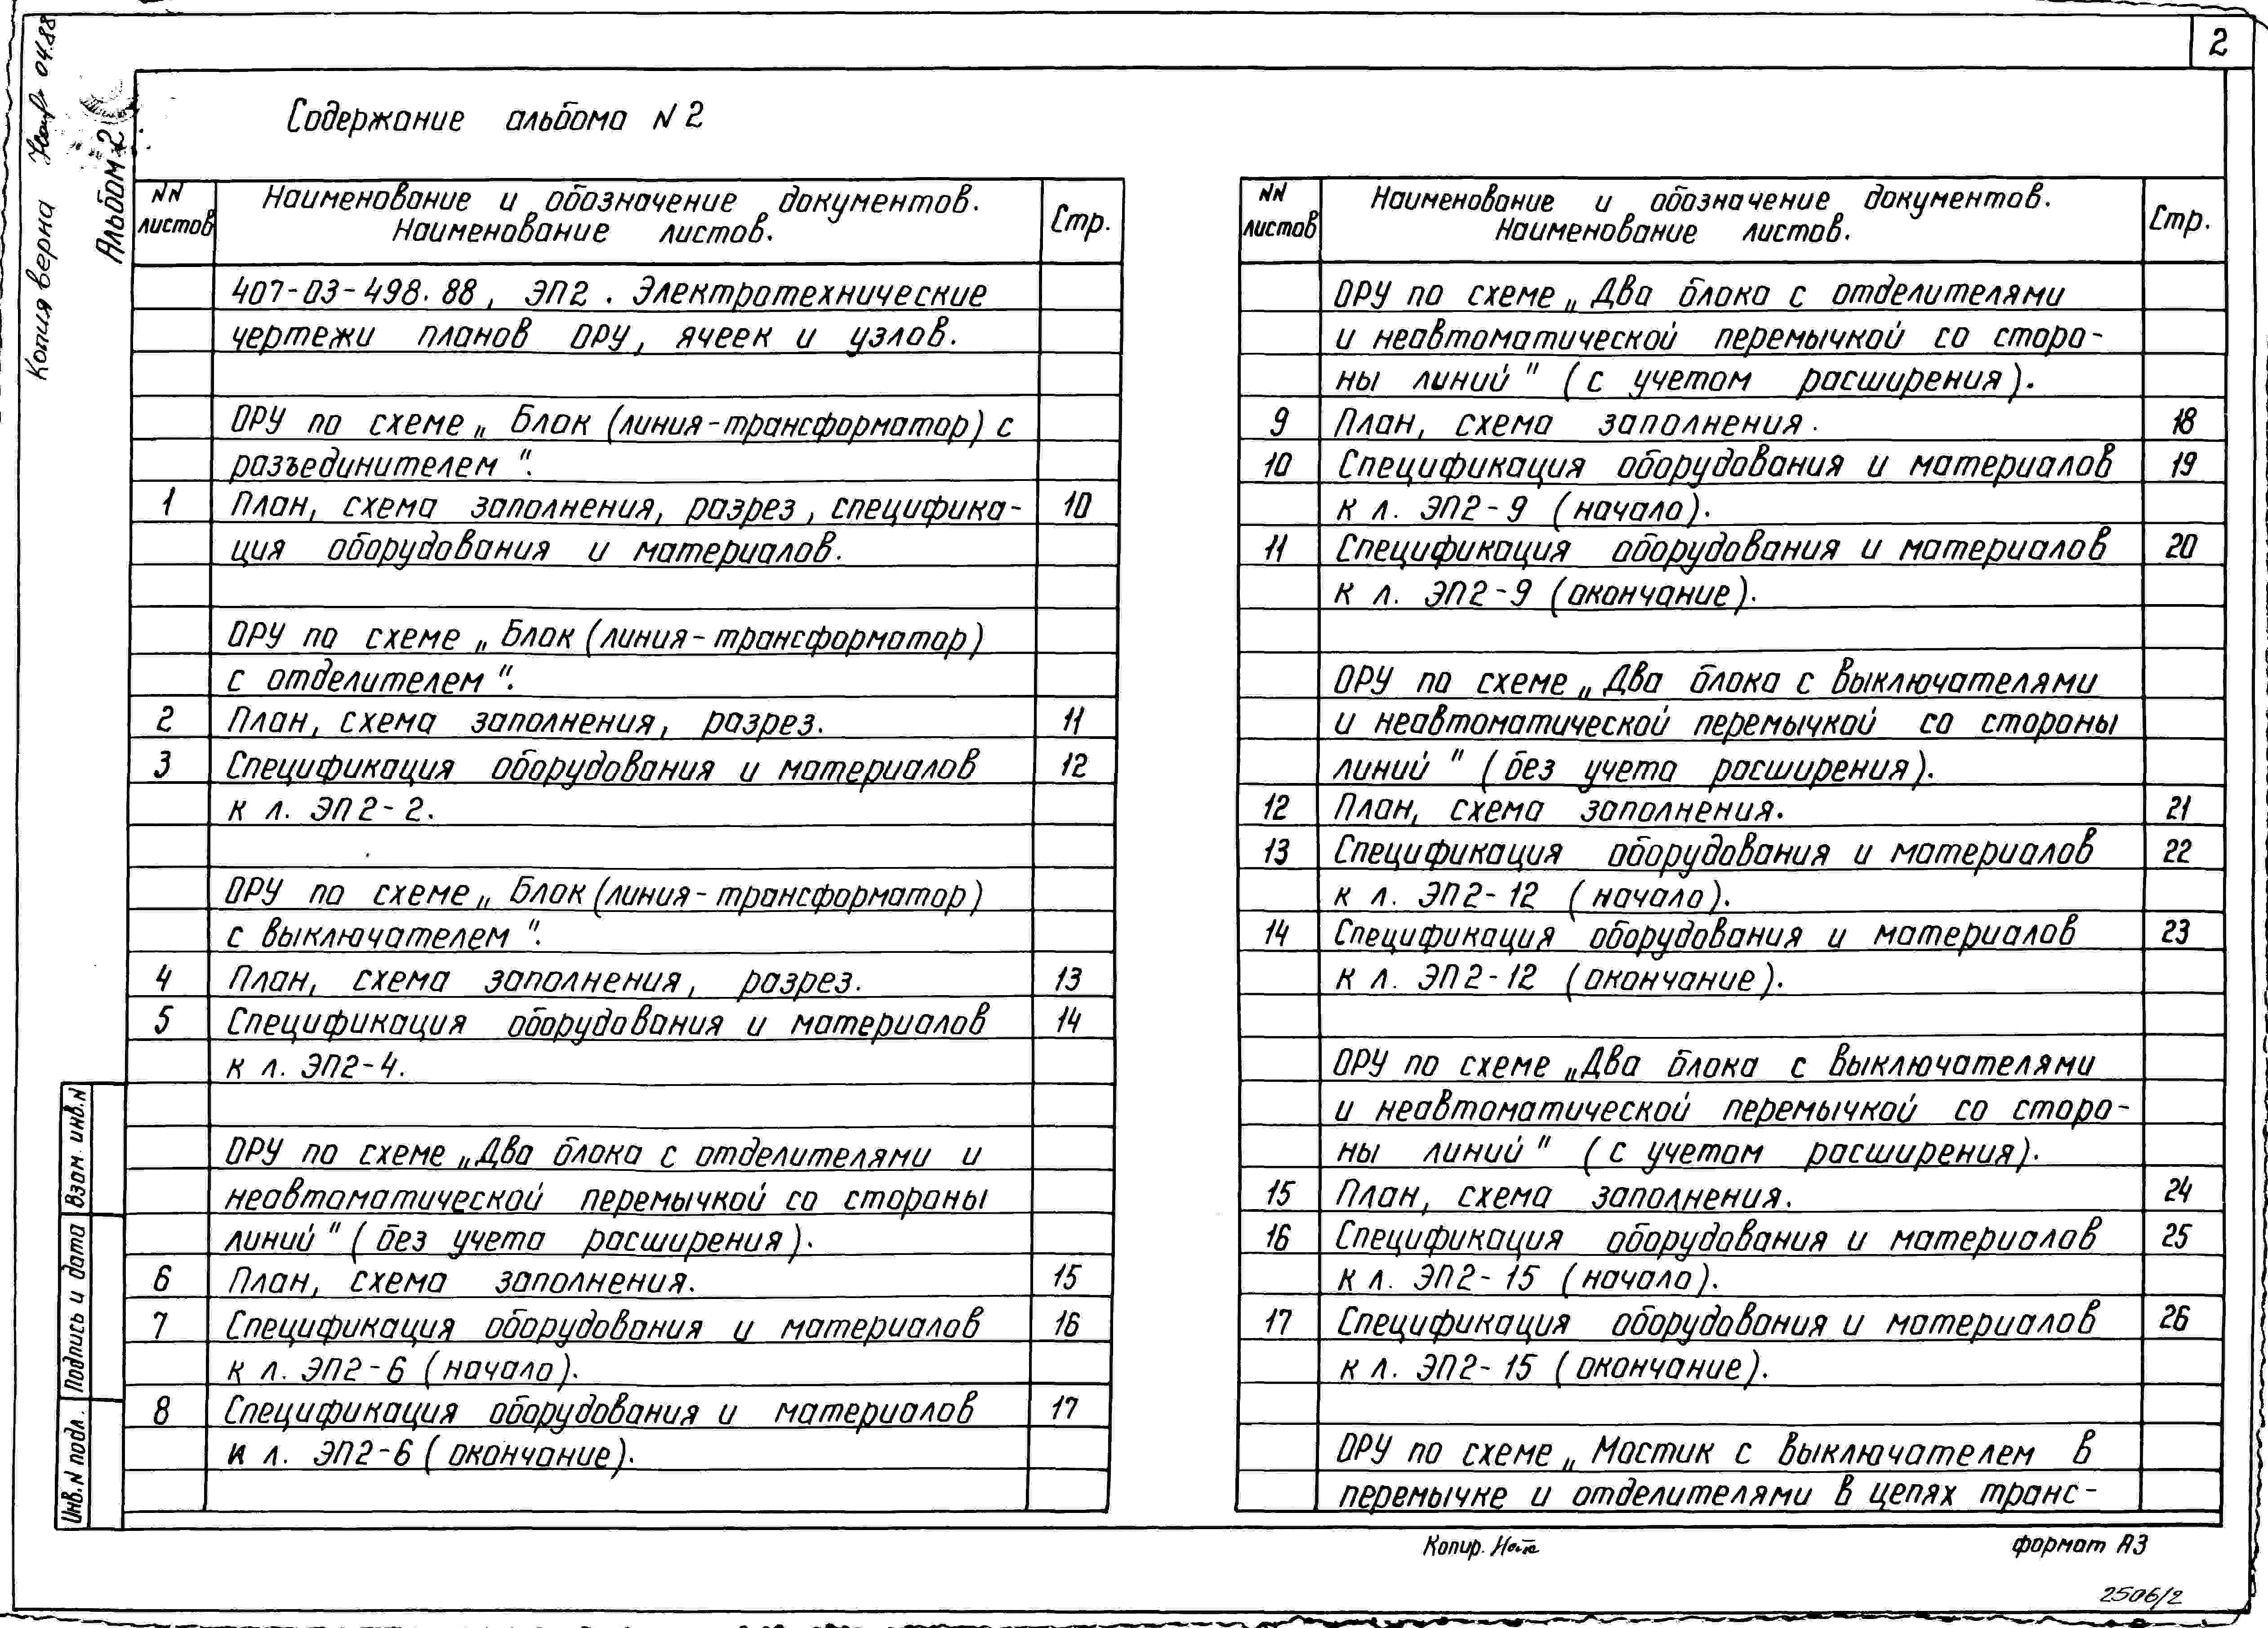 2
Копия верна 04.88
Альбом 2
Содержание альбома N 2
NN листов
Наименование и обозначение документов.
Наименование листов.
Стр.
407-03-498.88, ЭП2. Электротехнические
чертежи планов ОРУ, ячеек и узлов.
ОРУ по схеме „Блок (линия-трансформатор) с
разъединителем".
1 План, схема заполнения, разрез, специфика- 10
ция оборудования и материалов.
ОРУ по схеме „Блок (линия-трансформатор)
с отделителем".
2 План, схема заполнения, разрез. 11
3 Спецификация оборудования и материалов 12
к л. ЭП2-2.
ОРУ по схеме „Блок (линия-трансформатор)
с выключателем".
4 План, схема заполнения, разрез. 13
5 Спецификация оборудования и материалов 14
к л. ЭП2-4.
ОРУ по схеме „Два блока с отделителями и
неавтоматической перемычкой со стороны
линий" (без учета расширения).
6 План, схема заполнения. 15
7 Спецификация оборудования и материалов 16
к л. ЭП2-6 (начало).
8 Спецификация оборудования и материалов 17
к л. ЭП2-6 (окончание).
NN листов
Наименование и обозначение документов.
Наименование листов.
Стр.
ОРУ по схеме „Два блока с отделителями
и неавтоматической перемычкой со сторо-
ны линий" (с учетом расширения).
9 План, схема заполнения. 18
10 Спецификация оборудования и материалов 19
к л. ЭП2-9 (начало).
11 Спецификация оборудования и материалов 20
к л. ЭП2-9 (окончание).
ОРУ по схеме „Два блока с выключателями
и неавтоматической перемычкой со стороны
линий" (без учета расширения).
12 План, схема заполнения. 21
13 Спецификация оборудования и материалов 22
к л. ЭП2-12 (начало).
14 Спецификация оборудования и материалов 23
к л. ЭП2-12 (окончание).
ОРУ по схеме „Два блока с выключателями
и неавтоматической перемычкой со сторо-
ны линий" (с учетом расширения).
15 План, схема заполнения. 24
16 Спецификация оборудования и материалов 25
к л. ЭП2-15 (начало).
17 Спецификация оборудования и материалов 26
к л. ЭП2-15 (окончание).
ОРУ по схеме „Мостик с выключателем в
перемычке и отделителями в цепях транс-
Взам. инв. N
Подпись и дата
Инв. N подл.
Копир.
формат А3
2506/2